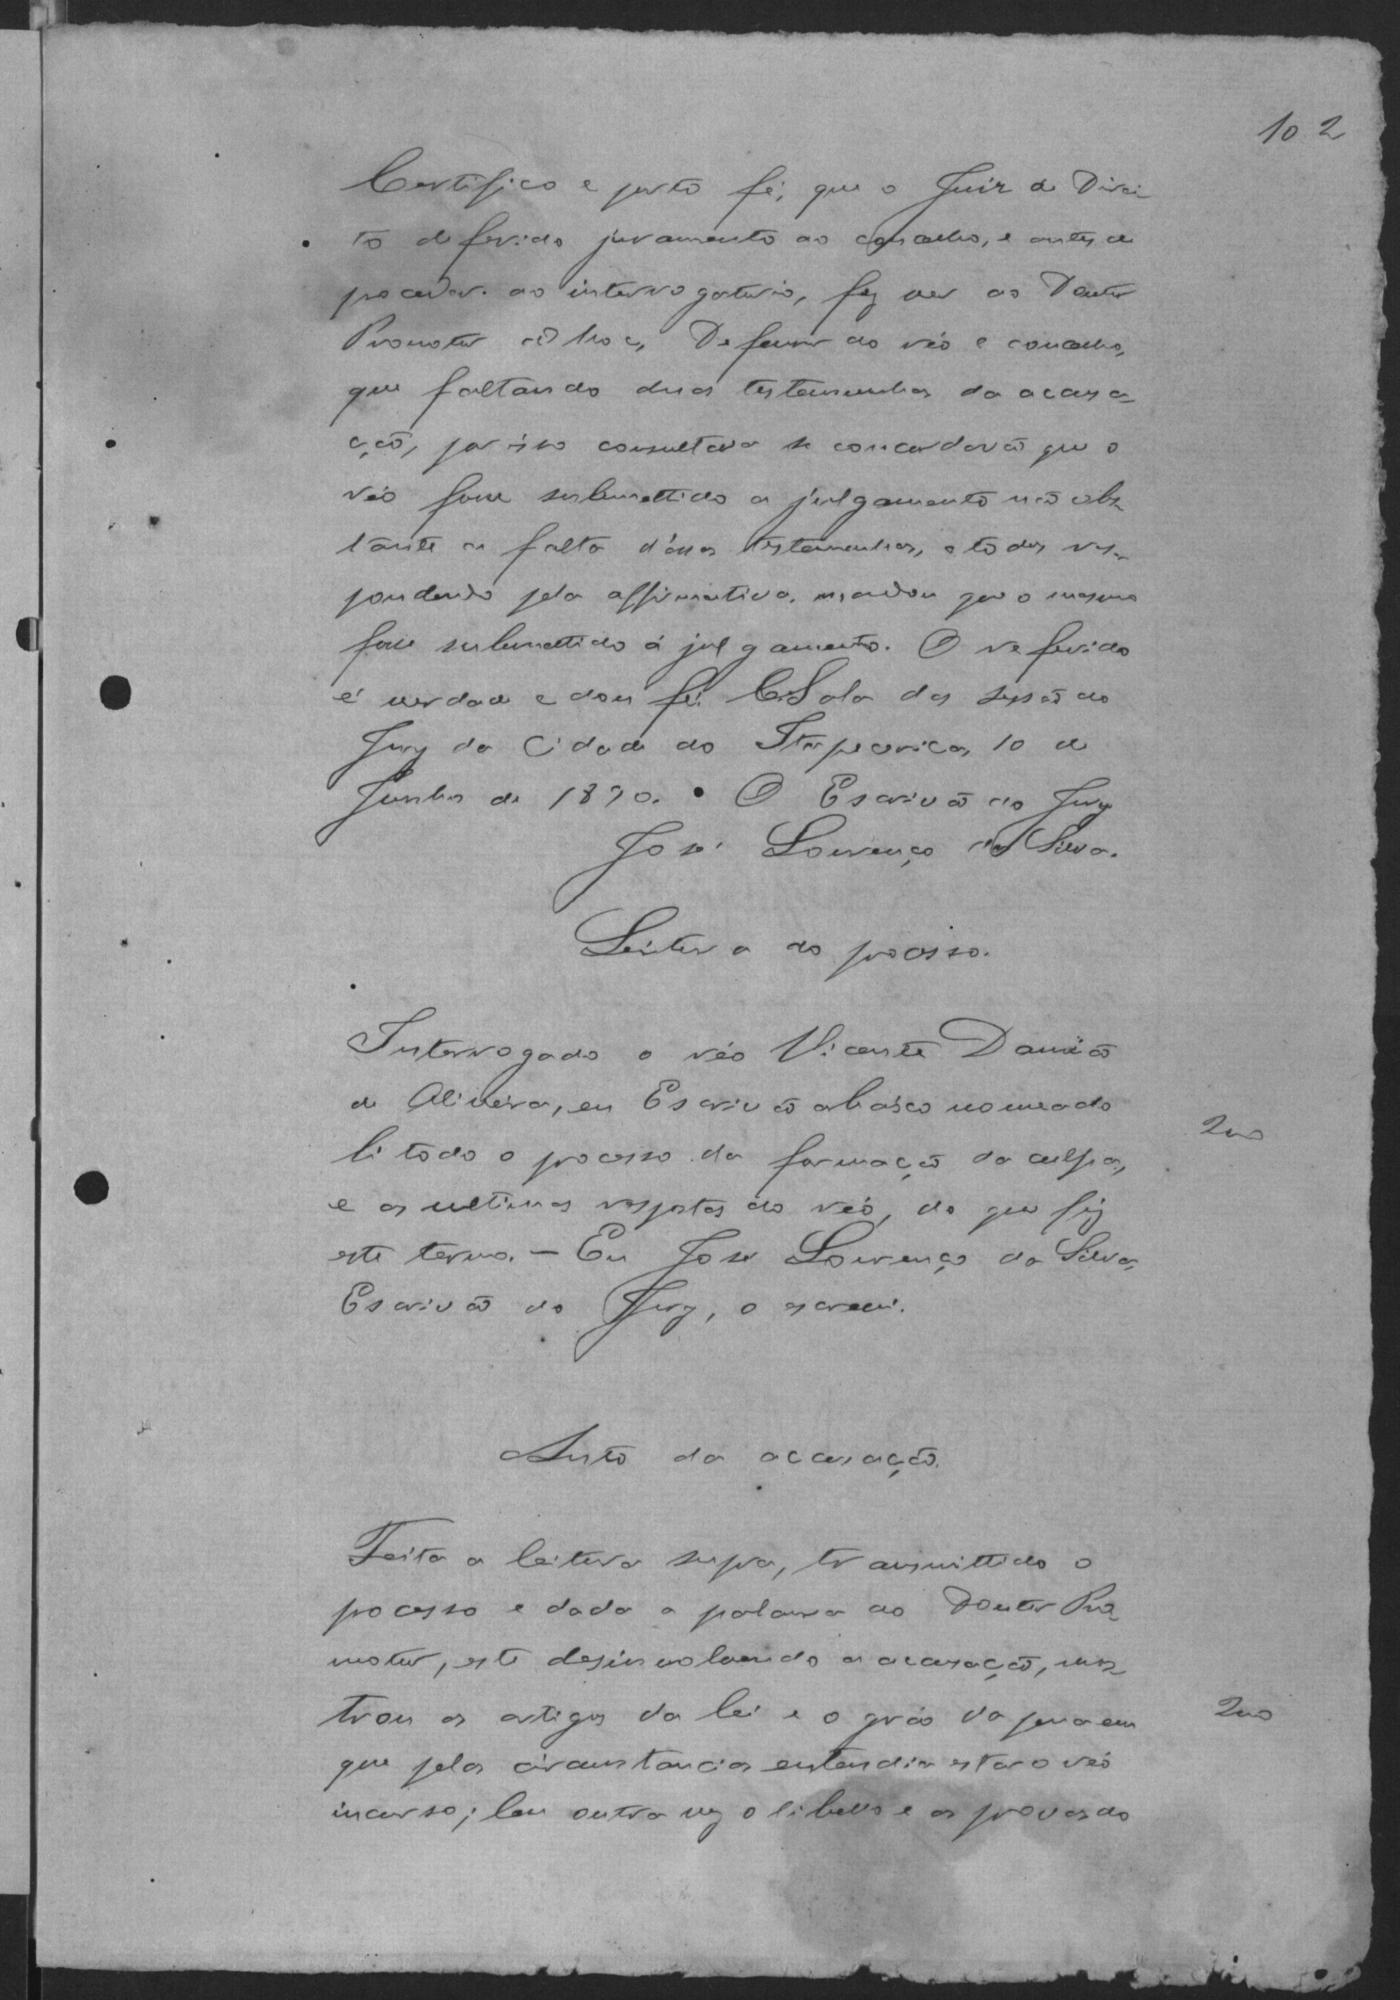 102
Certifico e porto fé, que o Juiz de Direi
to deferido juramento ao conselho, e antes de
proceder ao interrogatorio, fez ver ao Doutor
Promotor ad hoc, Defensor do réo e conselho,
que faltando duas testemunhas da accusa-
ção, por isso consultava se concordavão que o
réo fosse submettido a julgamento não obs-
tante a falta d'essas testemunhas, e todos res-
pondendo pela affirmativa, mandou que o mesmo
fosse submettido á julgamento. O referido
é verdade e dou fé. Sala das sessão do
Jury da Cidade do Itapecerica, 10 de
Junho de 1890. O Escrivão do Jury
José Lourenço da Silva.
Leitura do processo.
Interrogado o réo Vicente Damião
de Oliveira, eu Escrivão abaixo nomeado
li todo o processo da formação da culpa,
e as ultimas respostas do réo, do que fiz
este termo. — Eu José Lourenço da Silva,
Escrivão do Jury, o escrevi.
200
Auto da accusação.
Feita a leitura supra, transmittido o
processo e dada a palavra ao Doutor Pro-
motor, este desinvolvendo a accusação, mos-
trou os artigos da lei e o gráo da pena em
que pelas circunstancias entendia estar o réo
incurso; leu outra vez o libello e as provas do
200